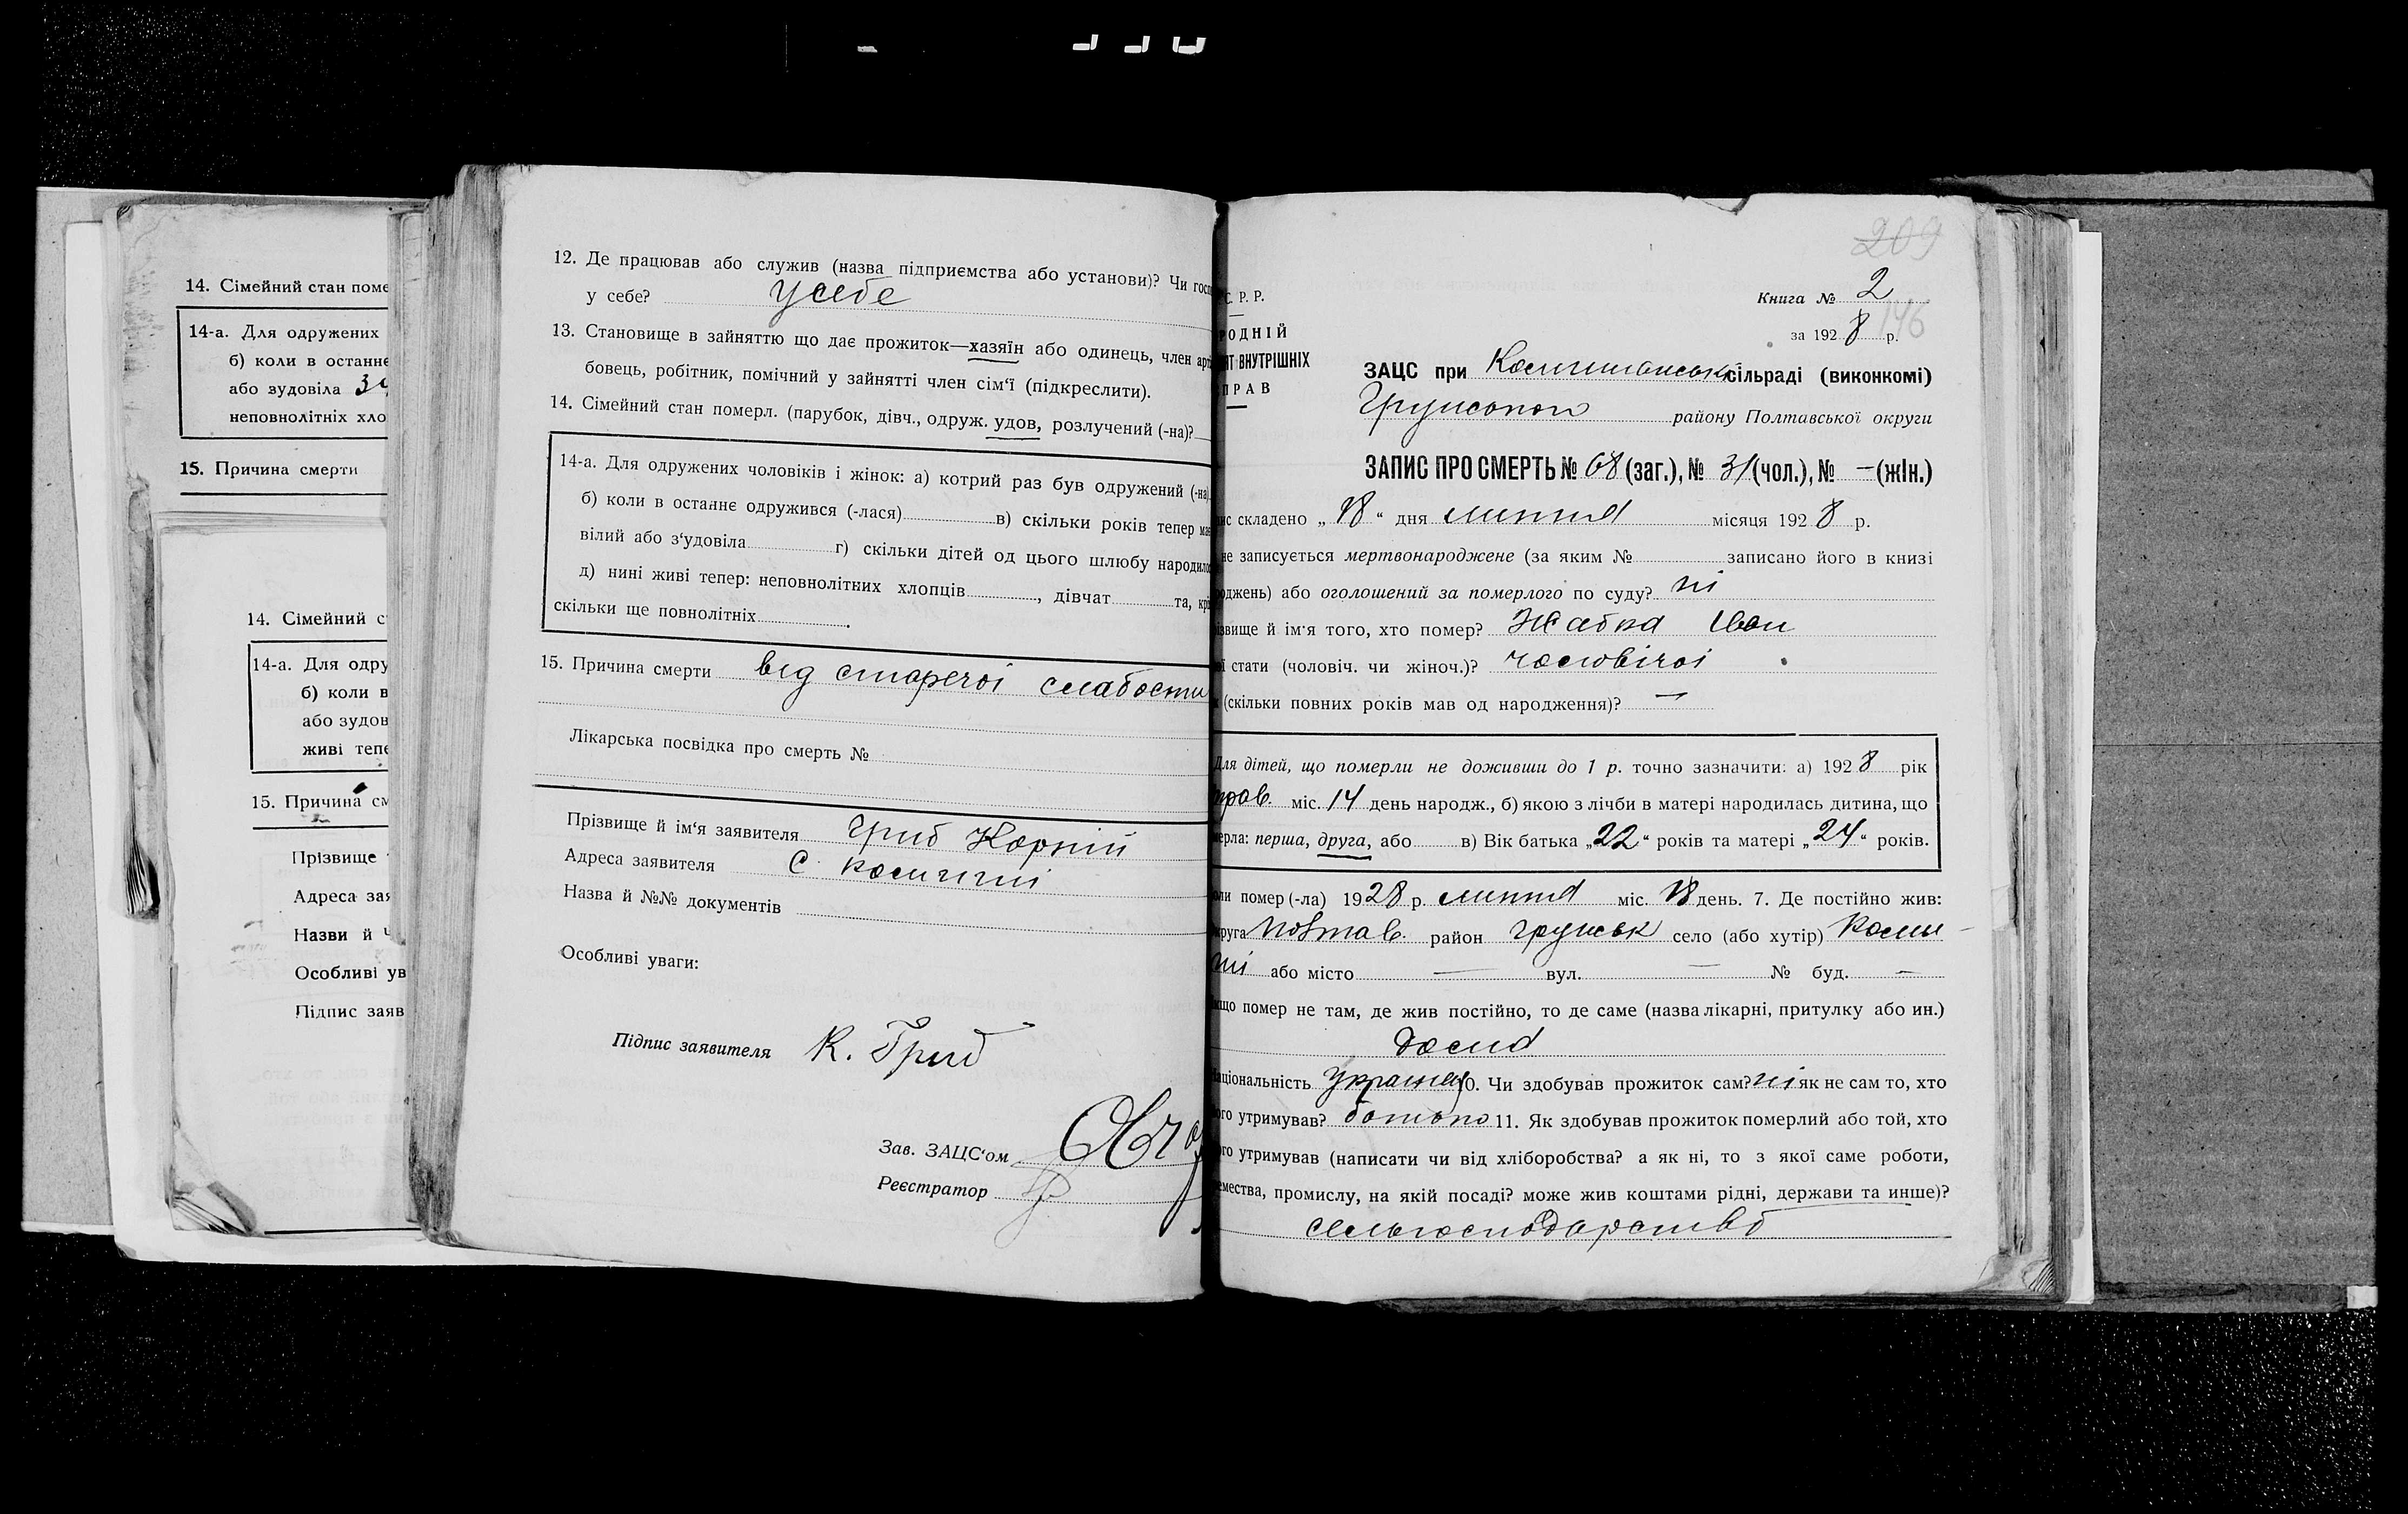 14. Сімейний стан поме
14-а. Для одружених
б) коли в останнє
або зудовіла
неповнолітніх хло
15. Причина смерти
14. Сімейний с
14-а. Для одру
б) коли в
або зудов
живі тепе
15. Причина см
Прізвище
Адреса зая
Назви й
Особливі ув
Підпис заяв
12. Де працював або служив (назва підприємства або установи)? Чи госп
у себе? у себе
13. Становище в зайняттю що дає прожиток—хазяїн або одинець, член арт
бовець, робітник, помічний у зайнятті член сім‘ї (підкреслити).
14. Сімейний стан померл. (парубок, дівч., одруж. удов, розлучений (-на)?
14-а. Для одружених чоловіків і жінок: а) котрий раз був одружений (-на)
б) коли в останнє одружився (-лася) в) скільки років тепер має
вілий або з‘удовіла г) скільки дітей од цього шлюбу народило
д) нині живі тепер: неповнолітних хлопців , дівчат та, крі
скільки ще повнолітніх .
15. Причина смерти від старечоі слабости
Лікарська посвідка про смерть №
Прізвище й ім‘я заявителя Гриб Корній
Адреса заявителя с.
Назва й №№ документів
Особливі уваги:
Підпис заявителя К. Гриб
Зав. ЗАЦС‘ом
Реєстратор
209
С. Р. Р.
РОДНІЙ
ЯТ ВНУТРІШНІХ
ПРАВ
Книга № 2
146
за 1928 р.
ЗАЦС при сільраді (виконкомі)
району Полтавської округи
ЗАПИС ПРО СМЕРТЬ № 68 (заг.), № 31 (чол.), № — (жін.)
ис складено „18“ дня липня місяця 1928 р.
не записується мертвонароджене (за яким № записано його в книзі
роджень) або оголошений за померлого по суду? ні
ізвище й ім‘я того, хто помер? Жабка Іван
ої стати (чоловіч. чи жіноч.)? чоловічоі
(скільки повних років мав од народження)? —
Для дітей, що померли не доживши до 1 р. точно зазначити: а) 1928 рік
трав. міс. 14 день народж., б) якою з лічби в матері народилась дитина, що
мерла: перша, друга, або в) Вік батька „22“ років та матері „24“ років.
оли помер (-ла) 1928 р. липня міс. 18 день. 7. Де постійно жив:
круга Полтав. район село (або хутір)
або місто — вул. — № буд. —
кщо помер не там, де жив постійно, то де саме (назва лікарні, притулку або ин.)
дома
аціональність 10. Чи здобував прожиток сам? ні як не сам то, хто
ого утримував? батько 11. Як здобував прожиток померлий або той, хто
ого утримував (написати чи від хліборобства? а як ні, то з якої саме роботи,
емества, промислу, на якій посаді? може жив коштами рідні, держави та инше)?